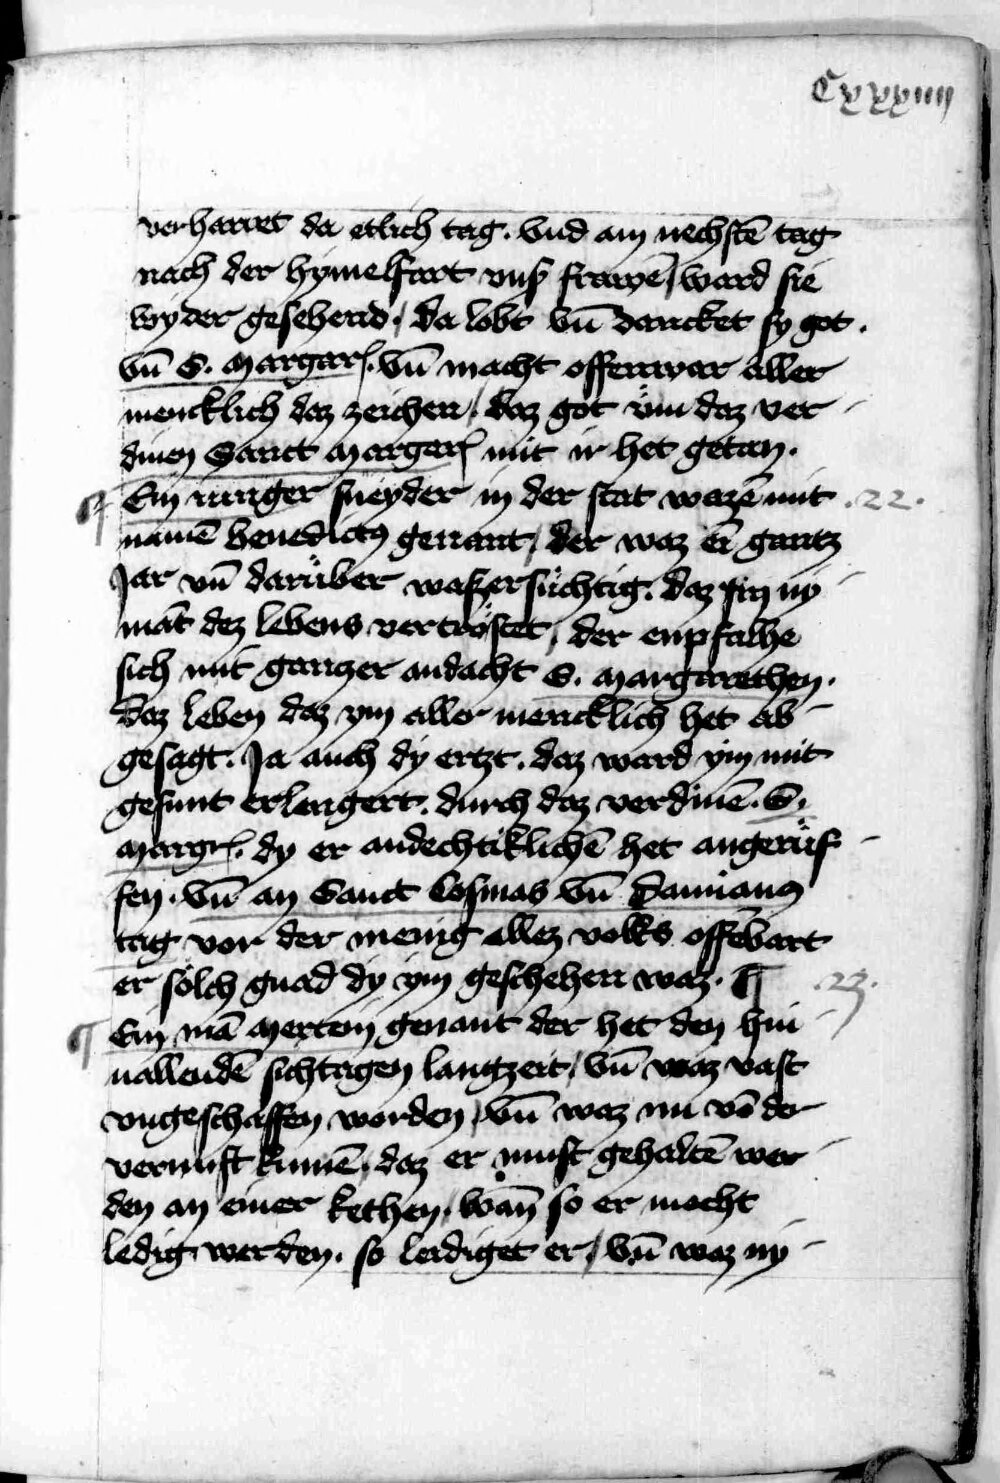 Cxxxiiii
verharret da etlich tag. Vnd am nechstē tag
nach der hymelfart vnß frawē / ward sie
wyder gesehend / da lobt vn̄ dancket sy got.
vn̄ S. Margar. Vn̄ macht offenwar aller
mencklich daz zeichen / daz got üm daz ver-
dinen Sanct Margar mit ir het getan.
¶ Ein iunger sneyder in der stat wazē mit .22.
namē benedictꝯ genant / der waz eī gantz
Jar vn̄ darüber waßersüchtig. daz ym ny-
māt dez lebens vertröstet / der enpfalhe
sich mit gantzer andacht S. Margarethen.
daz leben daz ym aller mencklich het ab-
gesagt. Ja auch dy ertzt. daz ward ym mit
gesunt erlengert. durch daz verdinē. S.
Margr. dy er andechtiklichē het angerüf-
fen. Vn̄ an Sanct Cosmas vn̄ Damianꝯ
tag vor der menig allez volks offēbart
er sölch gnad dy ym geschehen waz. ¶ .23.
¶ Ein mā Mertein genant der het den hin-
uallendē sichtagen langzeit / vn̄ waz vast
vngeschaffen worden / vn̄ waz nu vō der
vernuft kumē / daz er must gehaltē wer-
den an einer kethen / Wan̄ so er mocht
ledig werden. so leidiget er / vn̄ waz ny-